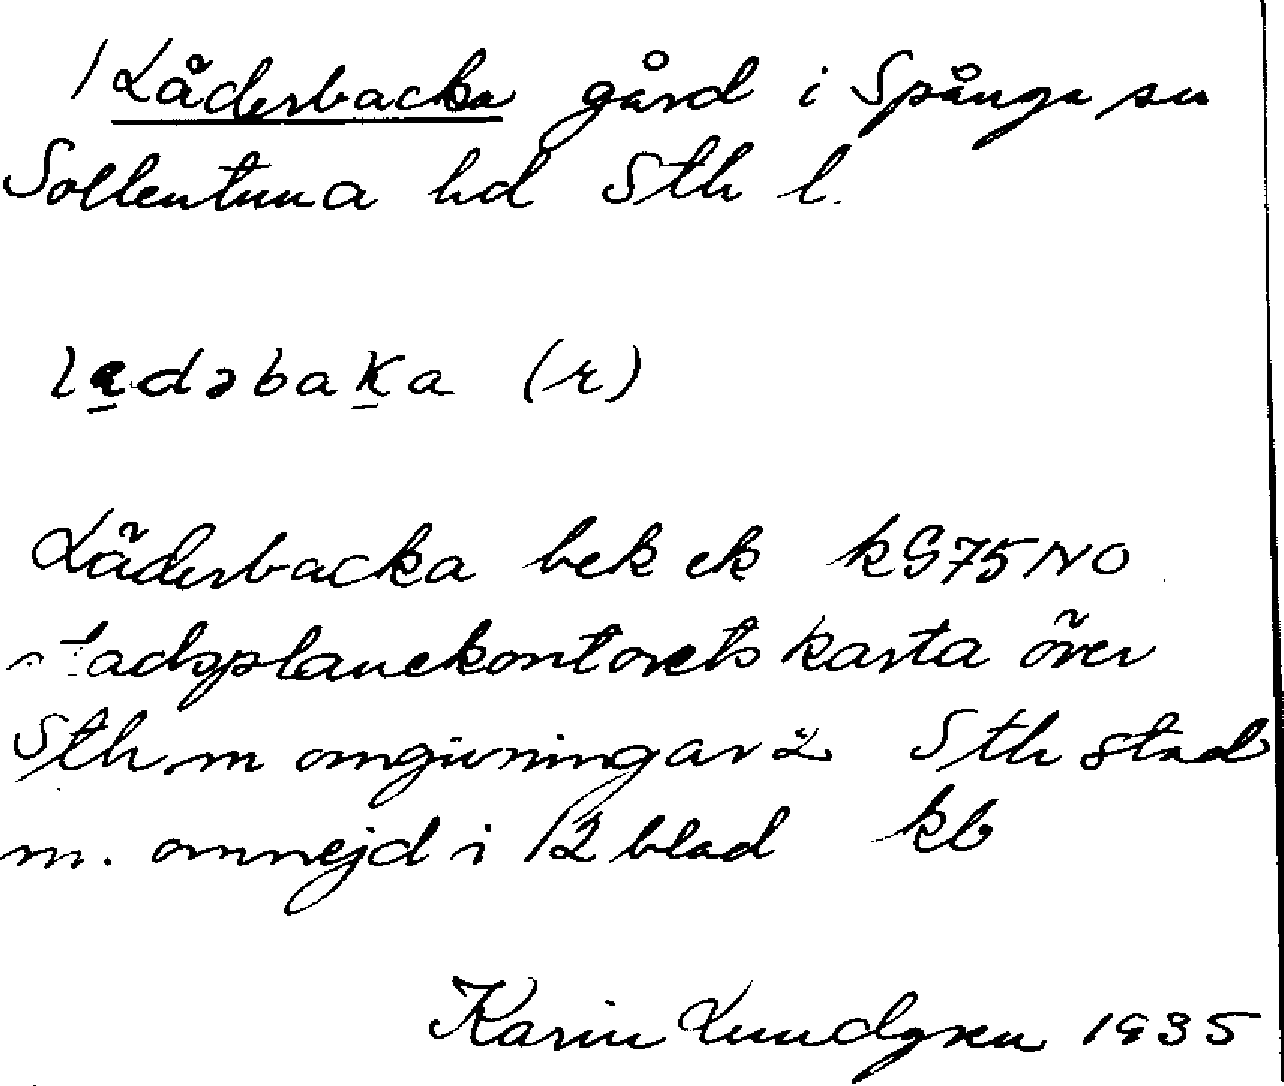 1 Läderbacka gård i Spånga sn
Sollentuna hd Sth l.
lädəbaka (r)
Läderbacka bek ek kG75NO
stadsplanekontorets karta över
Sthm omgivningar ä Sth stad
m. omnejd i 12 blad kb
Karin Lundgren 1935